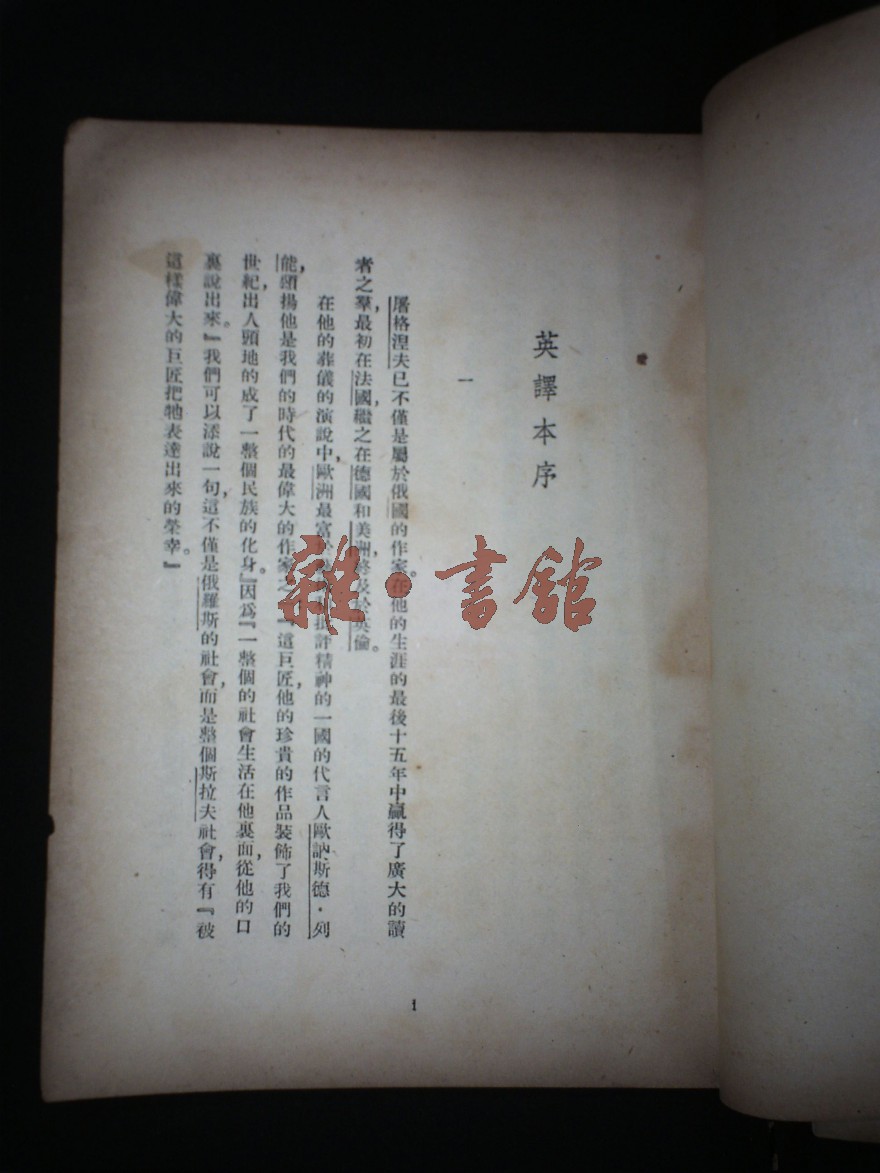 英譯本序
一
屠格涅夫已不僅是屬於俄國的作家。在他的生涯的最後十五年中贏得了廣大的讀
者之羣，最初在法國，繼之在德國和美洲，終及於英倫。
在他的葬儀的演說中，歐洲最富於批評精神的一國的代言人歐訥斯德·列
能，頌揚他是我們的時代的最偉大的作家之『這巨匠，他的珍貴的作品裝飾了我們的
世紀，出人頭地的成了一整個民族的化身。』因爲『一整個的社會生活在他裏面，從他的口
裏說出來。』我們可以添說一句，這不僅是俄羅斯的社會，而是整個斯拉夫社會，得有『被
這樣偉大的巨匠把牠表達出來的榮幸。』
1
雜·書館